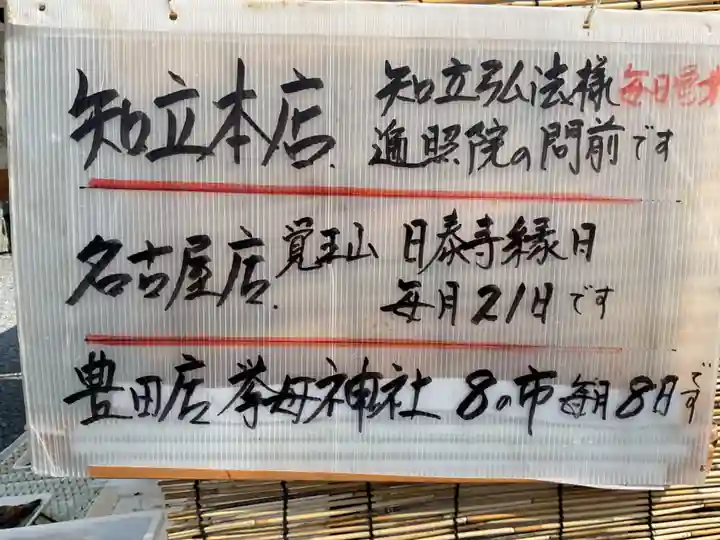 知立本店. 知立弘法様 毎日営
遍照院の門前です
名古屋店. 覚王山 日泰寺縁日
毎月21日です
豊田店 挙母神社 8の市 毎月8日です